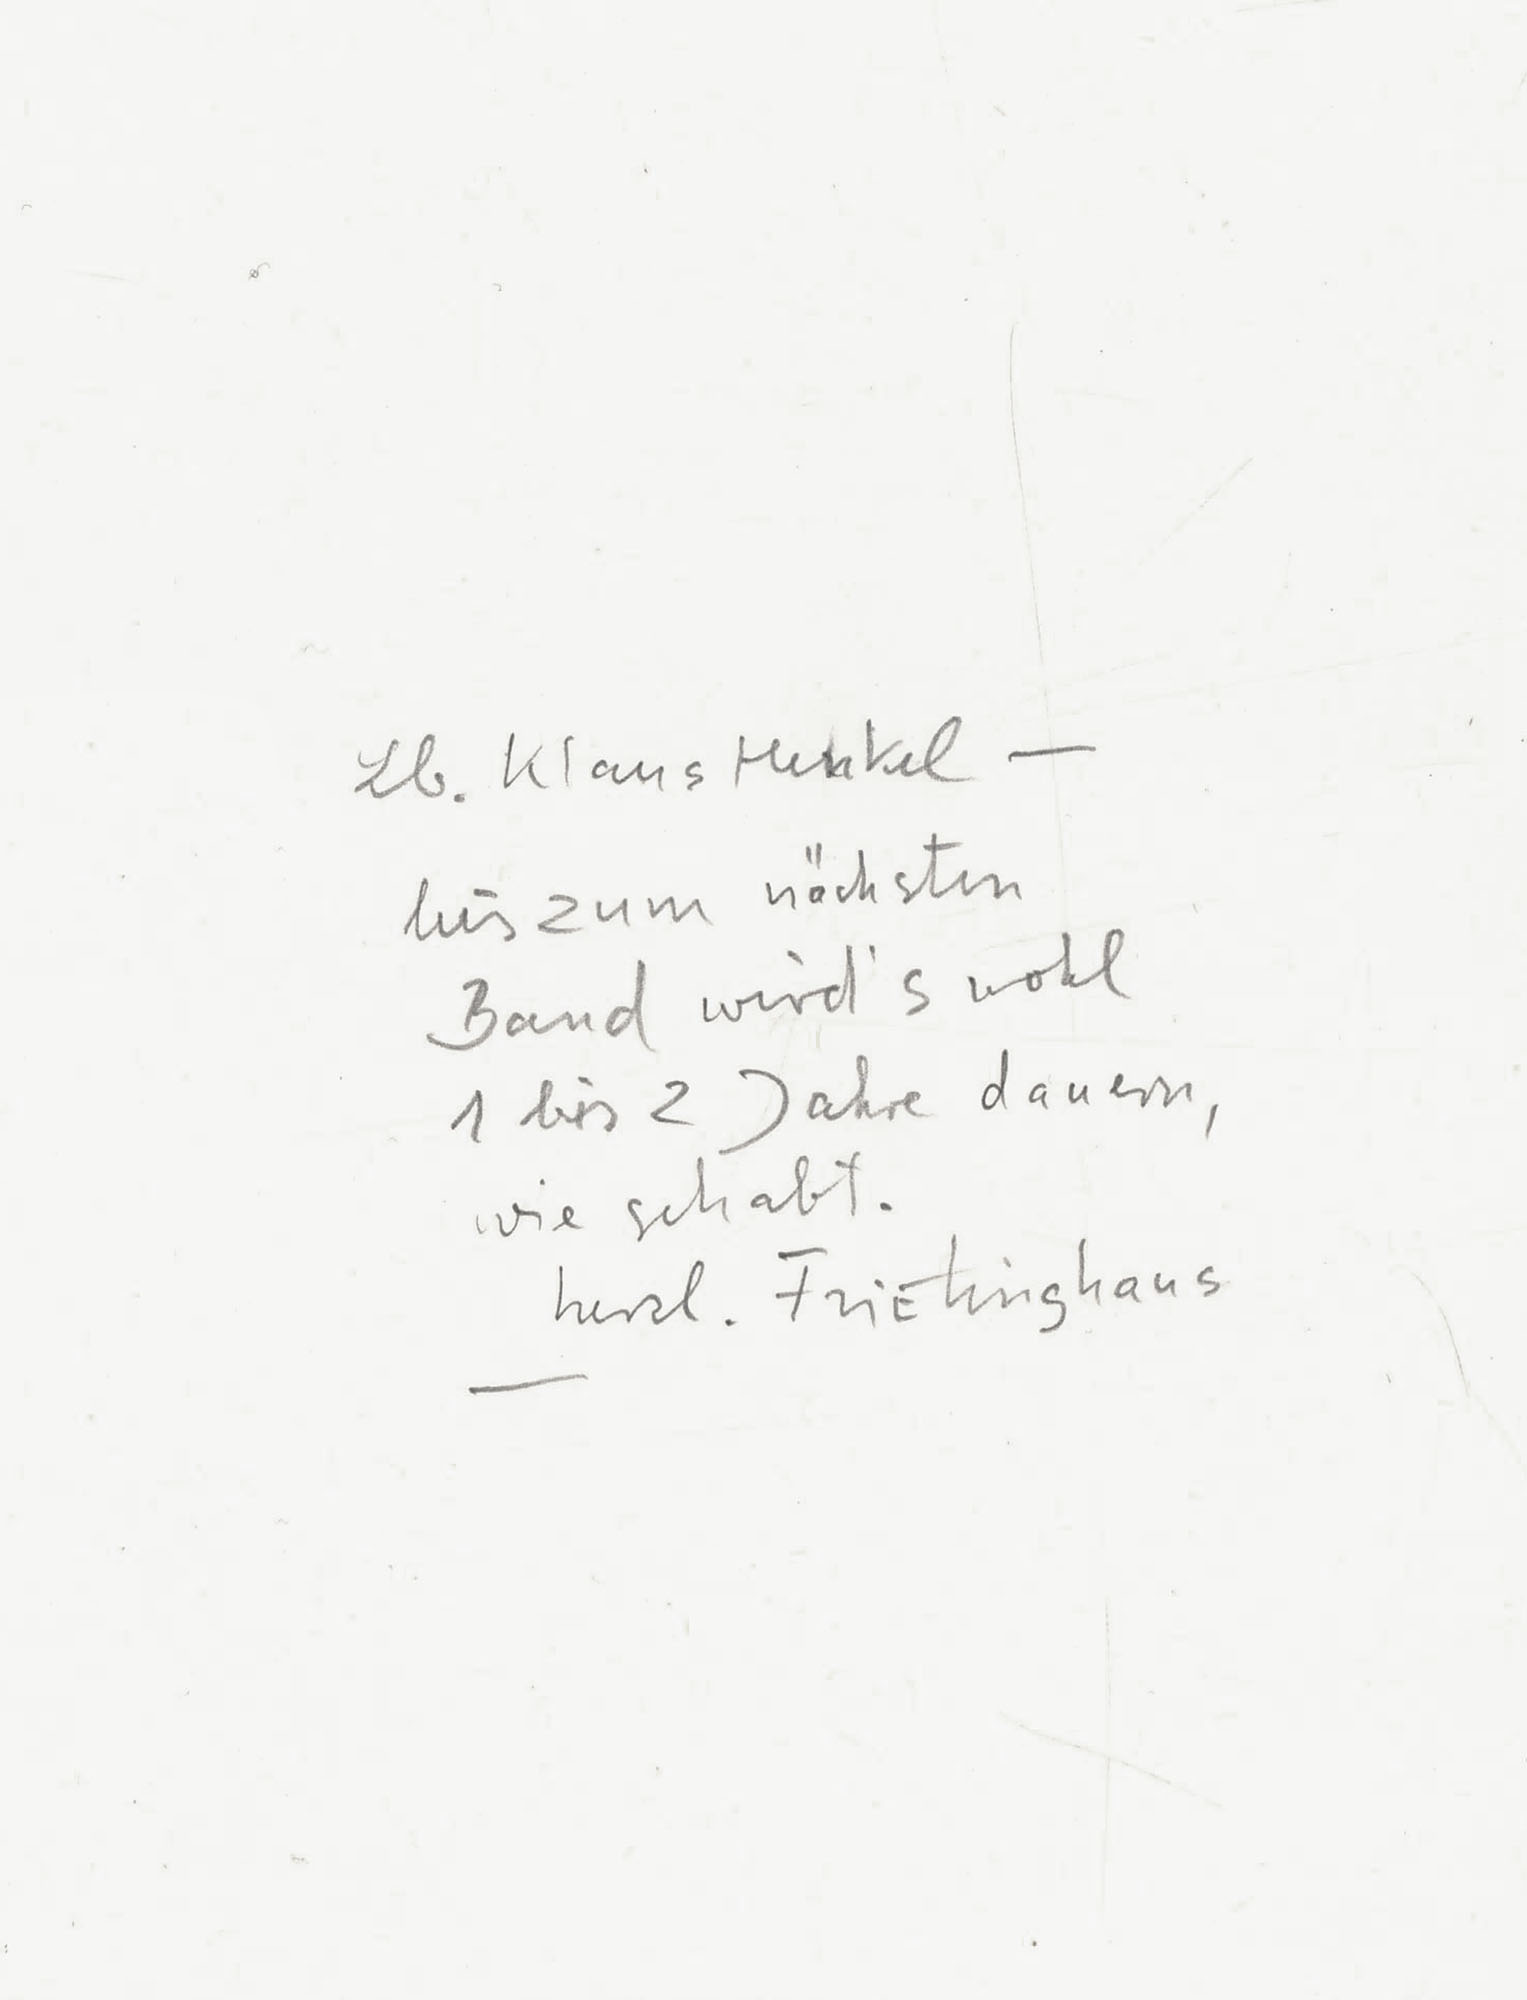 Lb. Klaus Henkel —
bis zum nächsten
Band wird's wohl
1 bis 2 Jahre dauern,
wie gehabt.
herzl. Frietinghaus
—